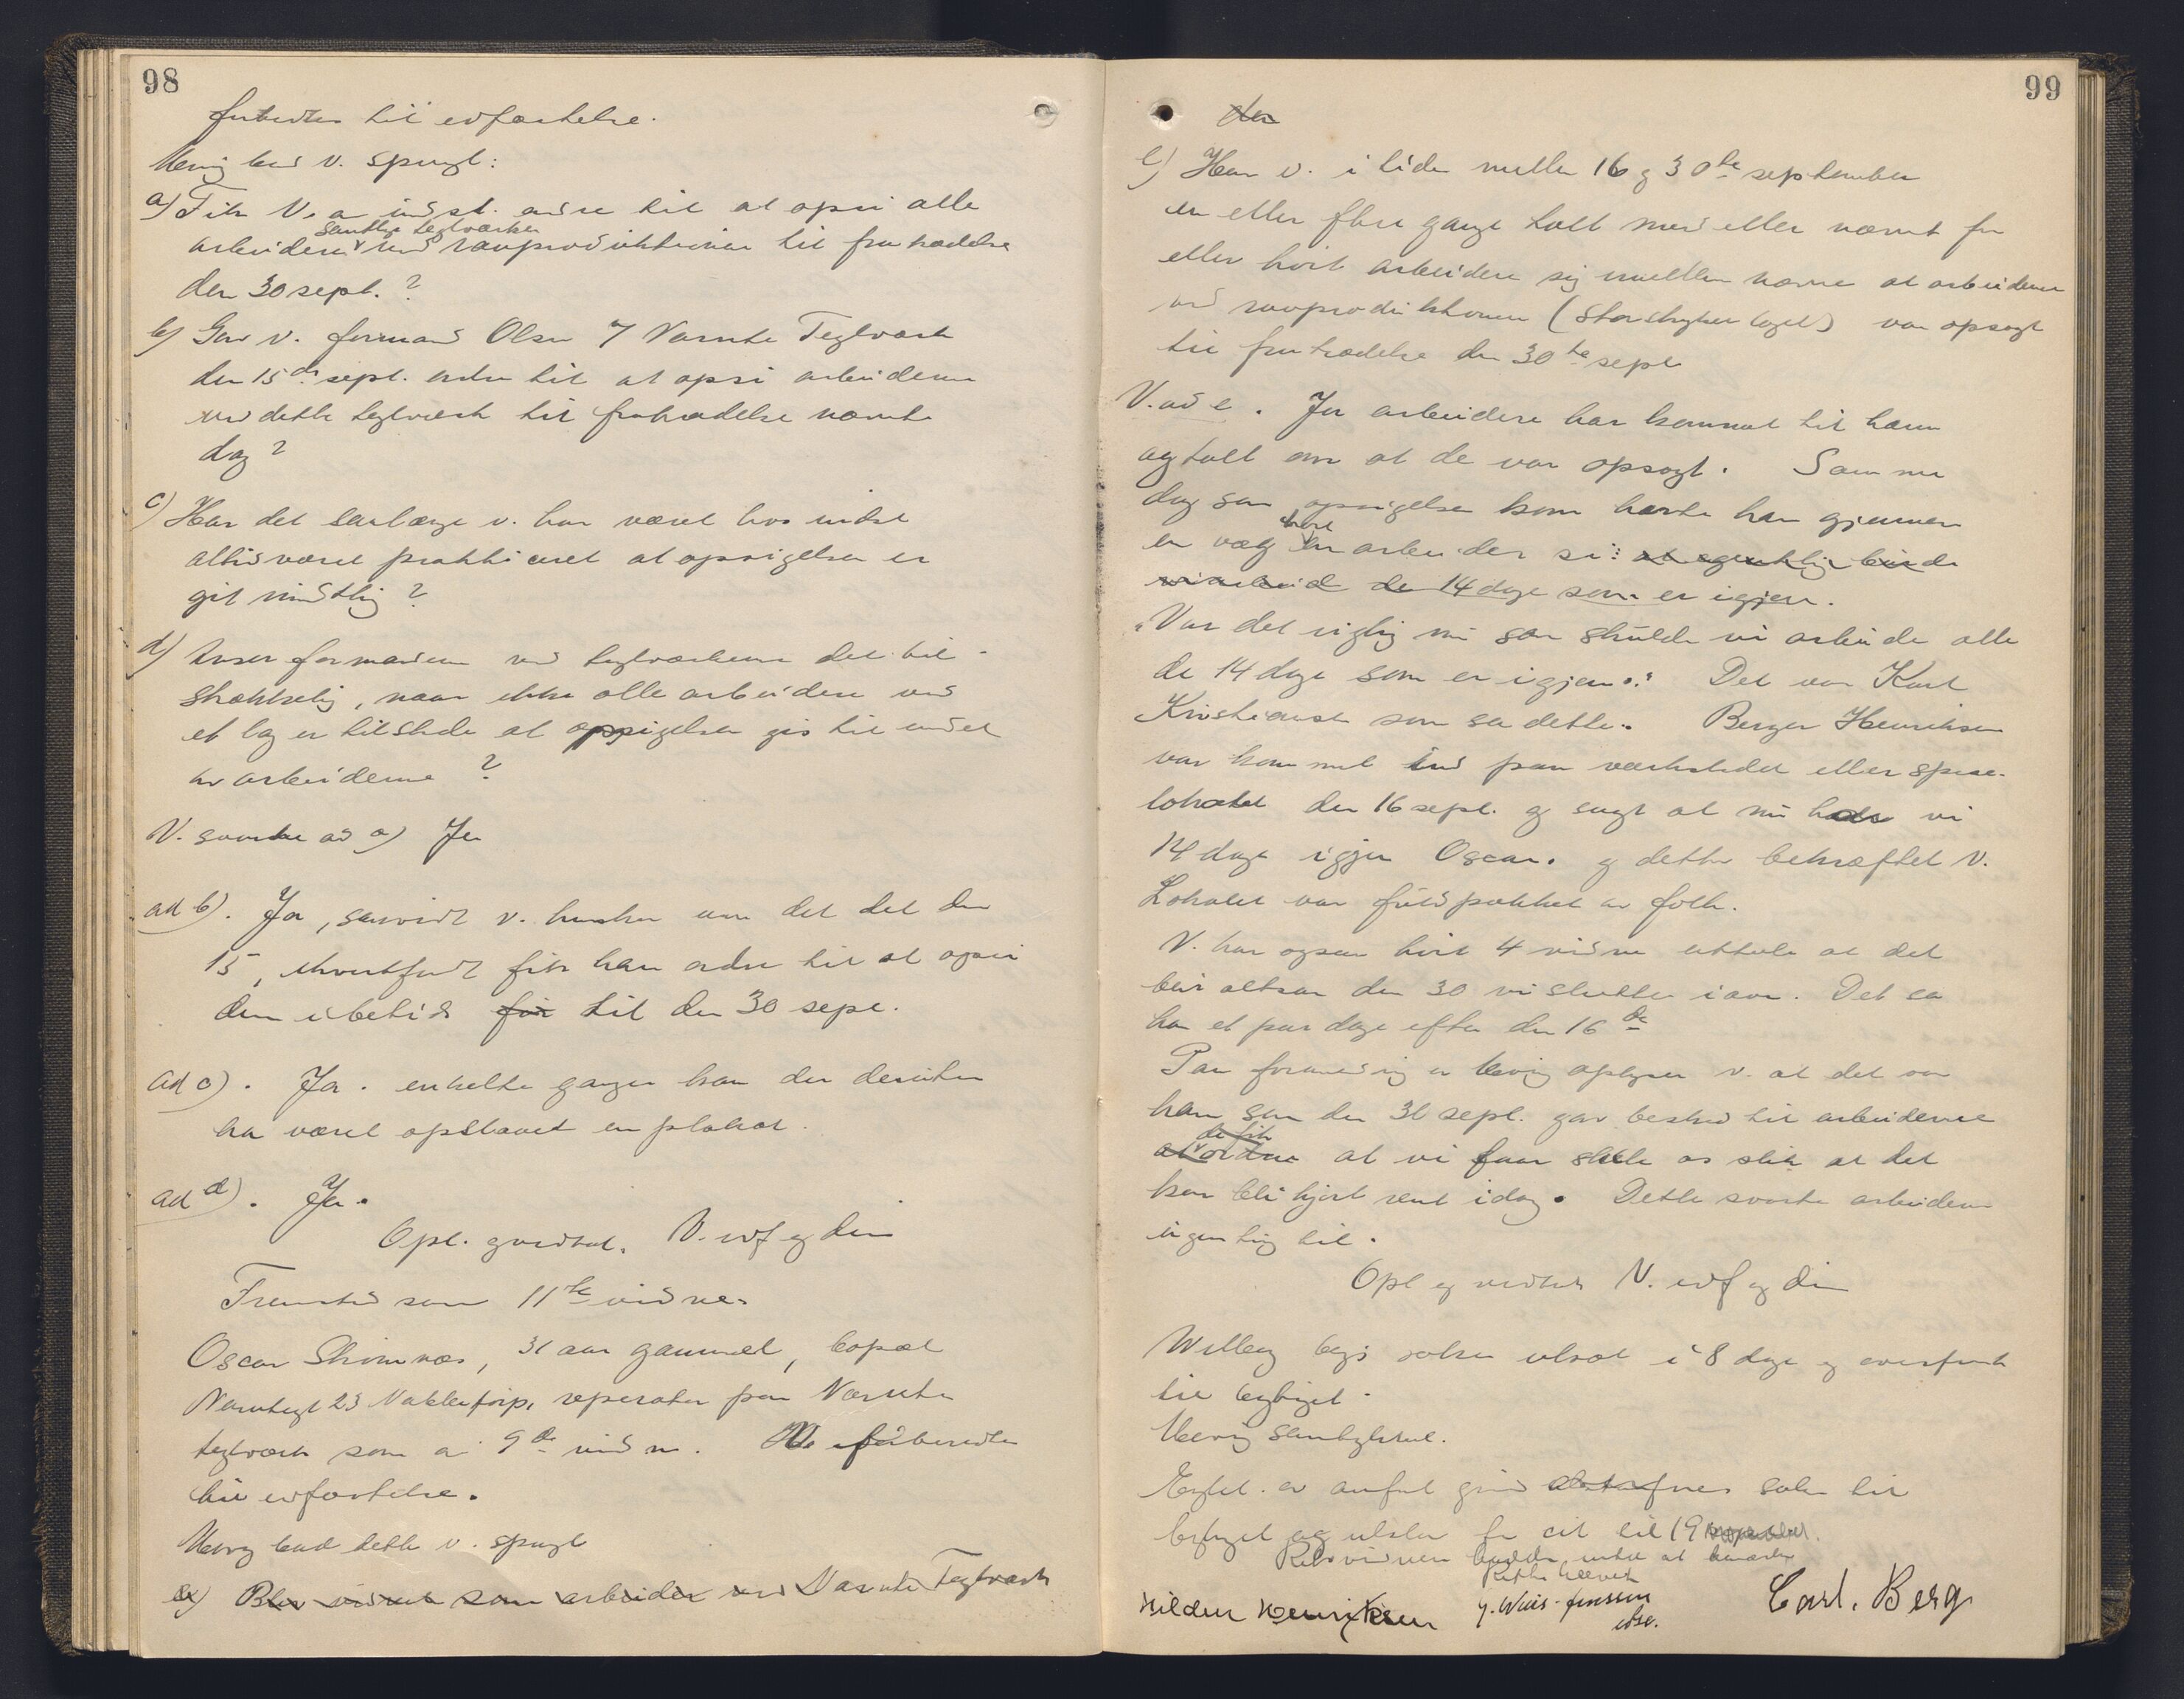 98
forberedtes til edfæstelse.
Meng bad v. spurgt:
a) Fik V. a indst. ordre til at opsi alle
samtlige teglværker
arbeidere ved raaproduktionen til fratrædelse
den 30 sept.?
b) Gav v. formand Olsen 7 Varnte Teglværk
den 15de sept. ordre til at opsi arbeiderne
ved dette teglverk til fratrædelse nævnte
dag?
c) Har det saalænge v. har været hos indst
altid været praktiseret at opsigelsen er
git mundtlig?
d) Anser formændene ved teglværkene det til-
strækkelig, naar ikke alle arbeidere ved
et lag er tilstede at opsigelsen gis til endel
av arbeiderne?
V. svarte ad a) Ja
ad b). Ja, saavidt v. husker var det det den
15, ihvertfald fik han ordre til at opsi
dem i betids før til den 30 sept.
ad c). Ja. enkelte ganger kan der desuten
ha været opslaaet en plakat.
ad d). Ja.
Opl. vedtat. V. edf og dim
Fremstod som 11te vidne
Oscar Skimnæs, 31 aar gammel, bopæl
23 reperatør paa Varnte
teglværk som a 9de vidne. forberedtes
til edfæstelse.
Meng bad dette v. spurgt
a) Blev vidnet som arbeider ved Varnte Teglværk
99
den
e) Har v. i tiden mellem 16 og 30te september
en eller flere gange talt med eller nævnt for
eller hørt arbeidere sig imellem nævne at arbeiderne
ved raaproduktionen (Storstrykerlaget) var opsagt
til fratrædelse den 30te sept
V. ad e. Ja arbeidere har kommet til ham
og talt om at de var opsagt. Samme
dag som opsigelsen kom hørte han gjennem
en væg en arbeider si: at egentlig burde
vi arbeid de 14 dage som er igjen.
"Var det rigtig nu saa skulde vi arbeide alle
de 14 dage som er igjen." Det var Karl
Kristiansen som sa dette. Berger Henriksen
var kommet ind paa verkstedet eller spise-
lokalet den 16 sept. og sagt at nu hadde vi
14 dage igjen Oscar. og dette bekræftet V.
Lokalet var fuldpakket av folk.
V. har ogsaa hørt 4 vidne uttale at det
blir altsaa den 30 vi slutter iaar. Det sa
han et par dage efter den 16de
Paa foranledning av Meng oplyser v. at det var
han som den 30 sept. gav besked til arbeiderne
de fik
at ordne at vi faar stelle os slik at det
kan bli kjørt rent idag. Dette svarte arbeiderne
ingenting til.
Opl og vedtat V. edf og dim
Willberg begj saken utsat i 8 dage og overført
til bybyret.
Meng samtykket.
Retten av anført grund saken til
og utsatte for cit til 19
Retsvidnen hadde intet at bemærke
Retten hævet
Hilden Henriksen
J. Wiis-Jenssen
Carl. Berg